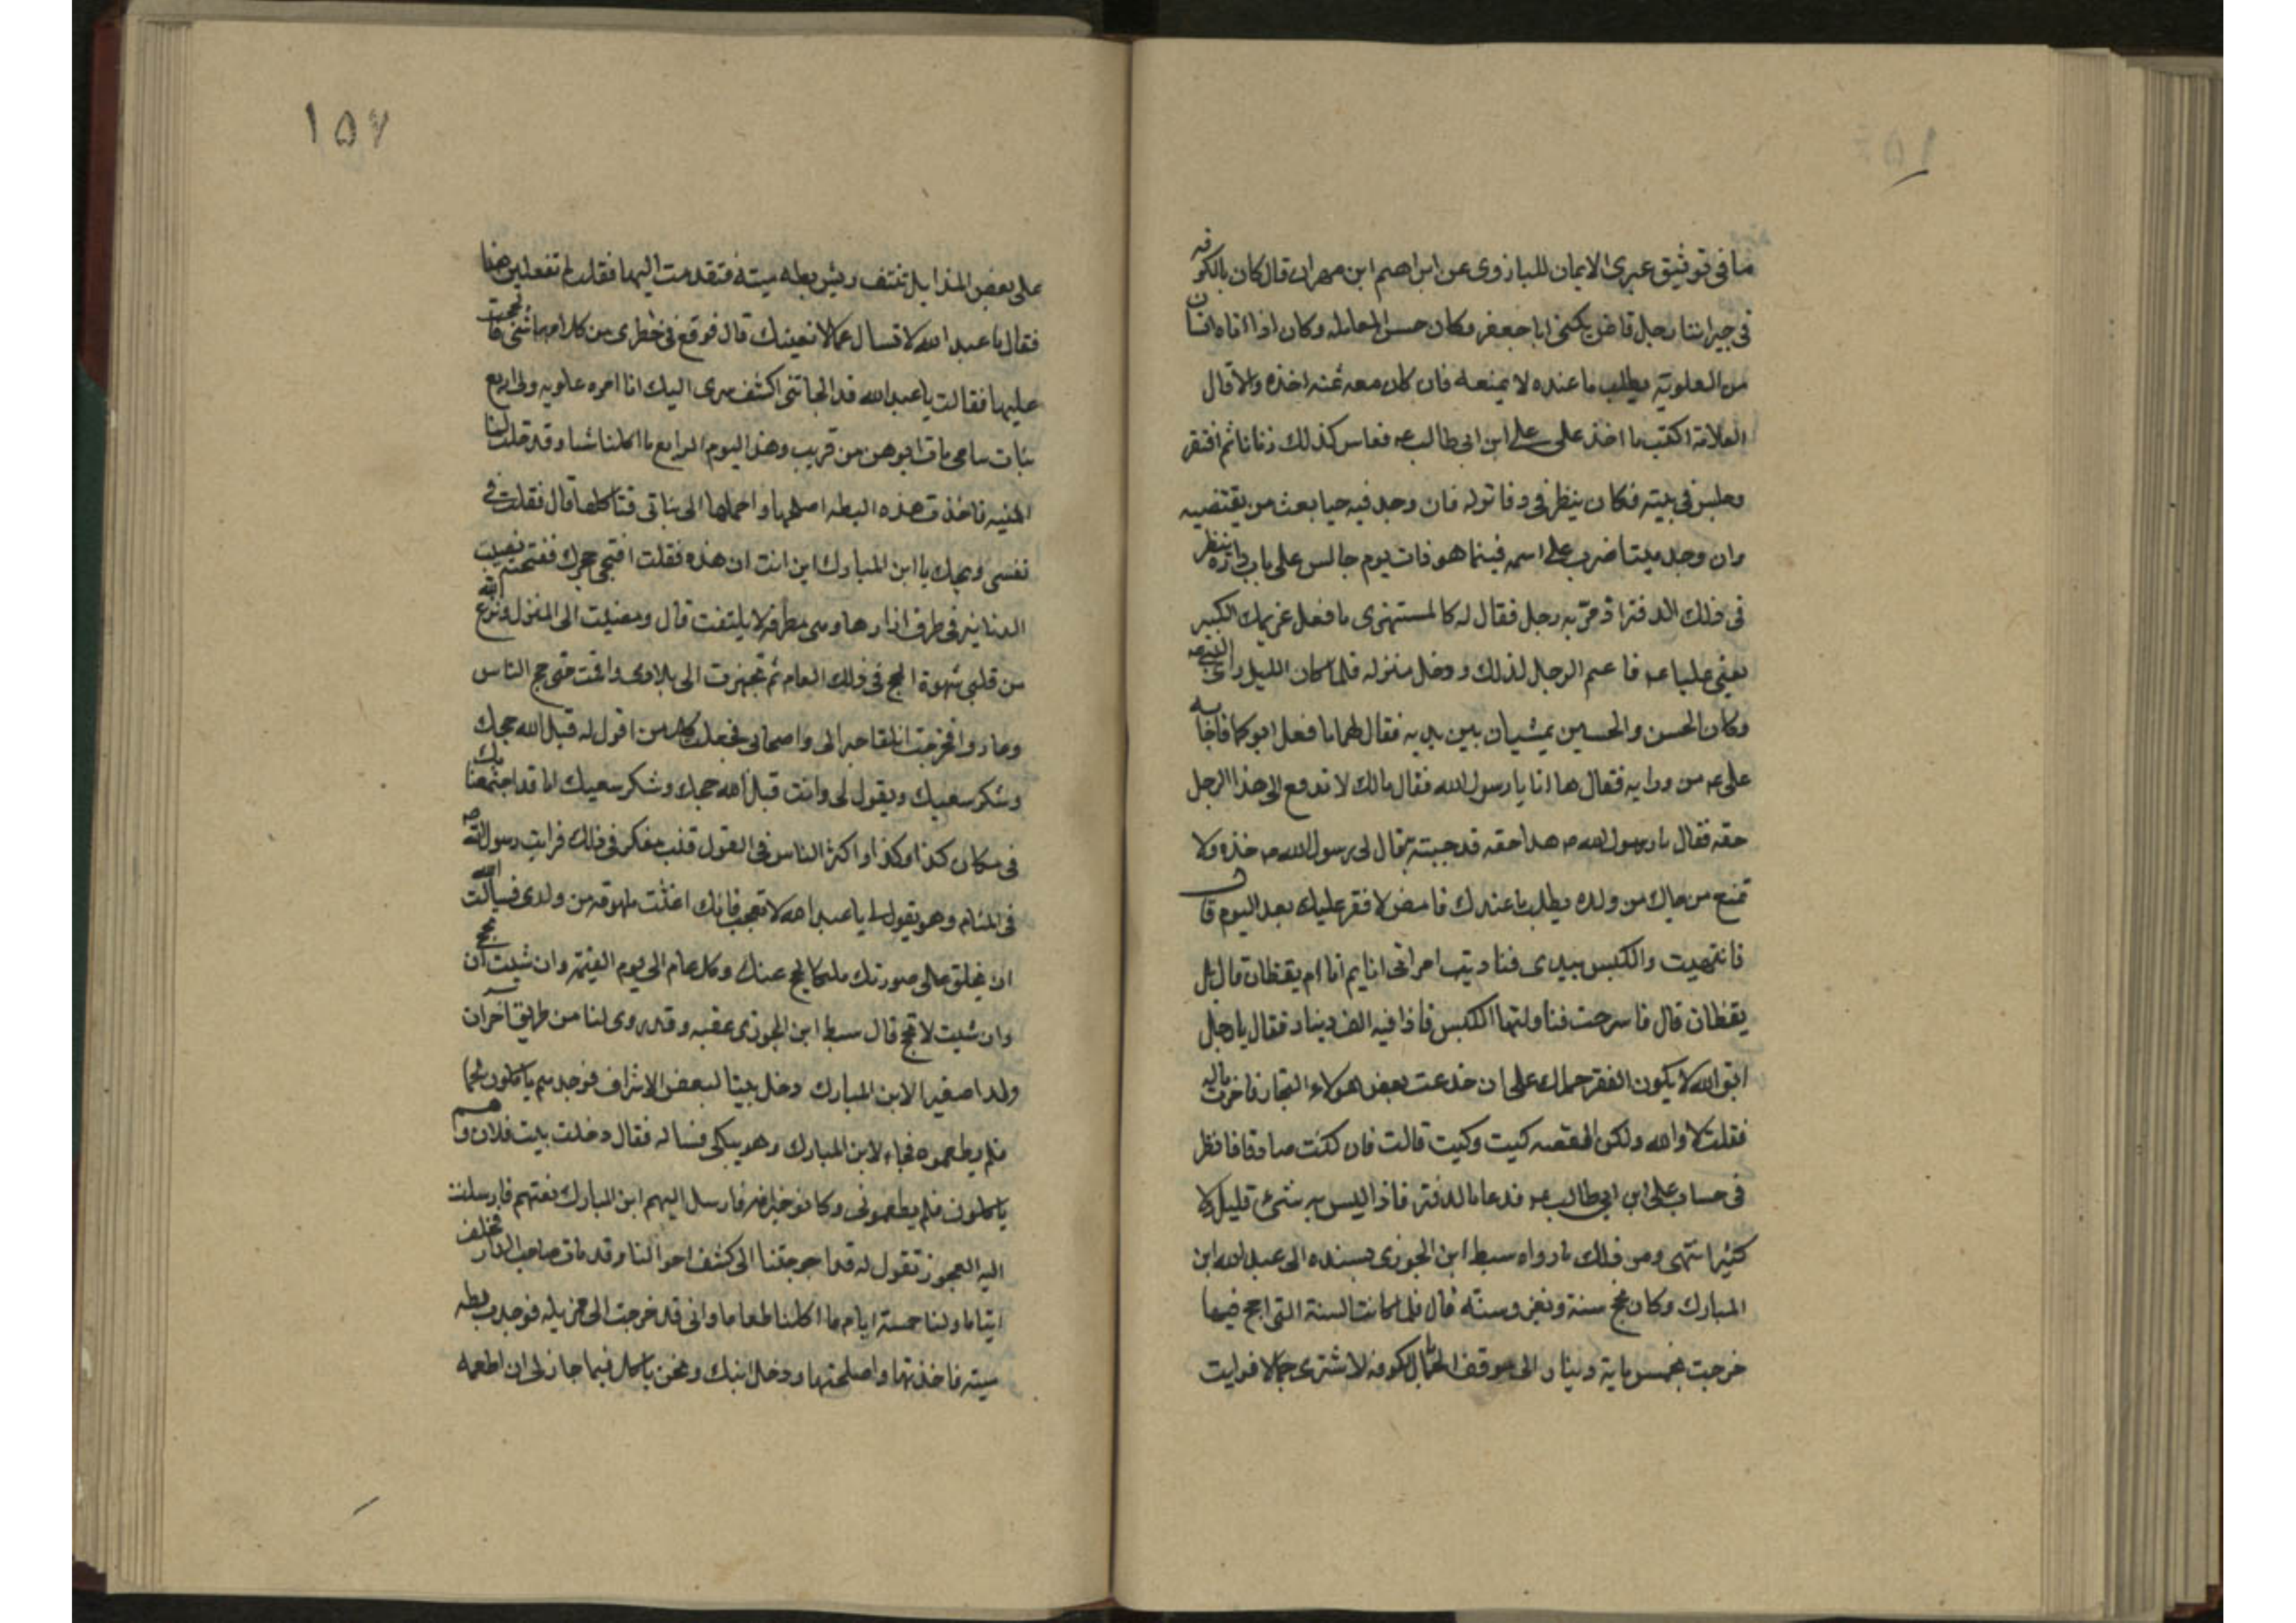 ما فى توثيق عرى الايمان للبازرى عن ابراهيم ابن مهران قال كان بالكوفه
فى جيراننا رجل قاض يكنى ابا جعفر وكان حسن المعامله وكان اذا اتاه انسان
من العلوية يطلب ما عنده لا يمنعه فان كان معه ثمنه اخذه والا قال
لغلامه اكتب ما اخذ على على ابن ابى طالب عه فعاش كذلك زمانا ثم افتقر
وجلس فى بيته فكان ينظر فى دفاتره فان وجد فيه حيا بعث من يقتضيه
وان وجد ميتا ضرب على اسمه فبينما هو ذات يوم جالس على باب داره ينظر
فى ذلك الدفتر اذ مر به رجل فقال له كالمستهزى ما فعل غريمك الكبير
يعنى عليا عه فاغتم الرجل لذلك ودخل منزله فلما كان الليل راى النبى صه
وكان الحسن والحسين يمشيان بين يديه فقال لهما ما فعل ابوكما فاجابه
على عه من ورايه فقال ها انا يا رسول الله فقال مالك لا تدفع الى هذا الرجل
حقه فقال يا رسول الله ص هذا حقه قد جيته به قال لى رسول الله ص خذه ولا
تمنع من جاك من ولده يطلب ما عندك فامض لا فقر عليك بعد اليوم قال
فانتبهت والكيس بيدى فناديت امراتى انايم انا ام يقظان قال بل
يقظان قال فاسرجت فناولتها الكيس فاذا فيه الف دينار فقال يا رجل
اتق الله لا يكون الفقر حملك على ان خدعت بعض هولاء التجار فاخذت ماله
فقلت لا والله ولكن القصه كيت وكيت قالت فان كنت صادقا فانظر
فى حساب على ابن ابى طالب عه فدعا بالدفتر فاذا ليس به شئ قليل لا
كثير انتهى ومن ذلك ما رواه سبط ابن الجوزى بسنده الى عبد الله ابن
المبارك وكان يحج سنة ويغزو سنة قال فلما كانت السنة التى احج فيها
خرجت بخمس ماية دينار الى موقف الجمال بالكوفه لاشترى جمالا فرايت
١٥٧
على بعض المزابل تنتف ريش بطه ميته فتقدمت اليها فقلت لم تفعلين هذا
فقال يا عبد الله لا تسال عما لا يعنيك قال فوقع فى خطرى من كلامها شئ فالححت
عليها فقالت يا عبد الله قد الجاتنى اكشف سرى اليك انا امره علويه ولى اربع
بنات يتامى مات ابوهن من قريب وهذا اليوم الرابع ما اكلنا شيا وقد حلت لنا
الميته فاخذت هذه البطه اصلحها واحملها الى بناتى فتاكلها قال فقلت فى
نفسى ويحك يا ابن المبارك اين انت ان هذه فقلت افتحى حجرك ففتحته فصبيت
الدنانير فى طرف ازارها وهى مطرقه لا يلتفت قال ومضيت الى المنزل ونزع الله
من قلبى شهوة الحج فى ذلك العام ثم تجهزت الى بلادى واقمت حتى حج الناس
وعادوا فخرجت اتلقا جيرانى واصحابى فجعلت كل من اقول له قبل الله حجك
وشكر سعيك ويقول لى وانت قبل الله حجك وشكر سعيك اما قد اجتمعنا بك
فى مكان كذا وكذا واكثر الناس فى القول فبت مفكر فى ذلك فرايت رسول الله صه
فى المنام وهو يقول لى يا عبد الله لا تعجب فانك اغثت ملهوفه من ولدى فسالت الله
ان يخلق على صورتك ملكا يحج عنك وكل عام الى يوم القيمة وان شيت ان تحج
وان شيت لا تحج قال سبط ابن الجوزى عقبه وقد روى لنا من طريق آخر ان
ولدا صغيرا لابن المبارك دخل بيتا لبعض الاشراف فوجدهم ياكلون لحما
فلم يطعموه فجاء لابن المبارك وهو يبكى فساله فقال دخلت بيت فلان وهم
ياكلون فلم يطعمونى وكانوا جيرانه فارسل اليهم ابن المبارك يعتبهم فارسلت
اليه العجوز تقول له قد احوجتنا الى كشف احوالنا وقد مات صاحب الدار وخلف
ايتاما ولنا خمسة ايام ما اكلنا طعاما وانى قد خرجت الى مزبله فوجدت بطه
ميته فاخذتها واصلحتها ودخل ابنك ونحن ياكل فيما جاز لى ان اطعمه